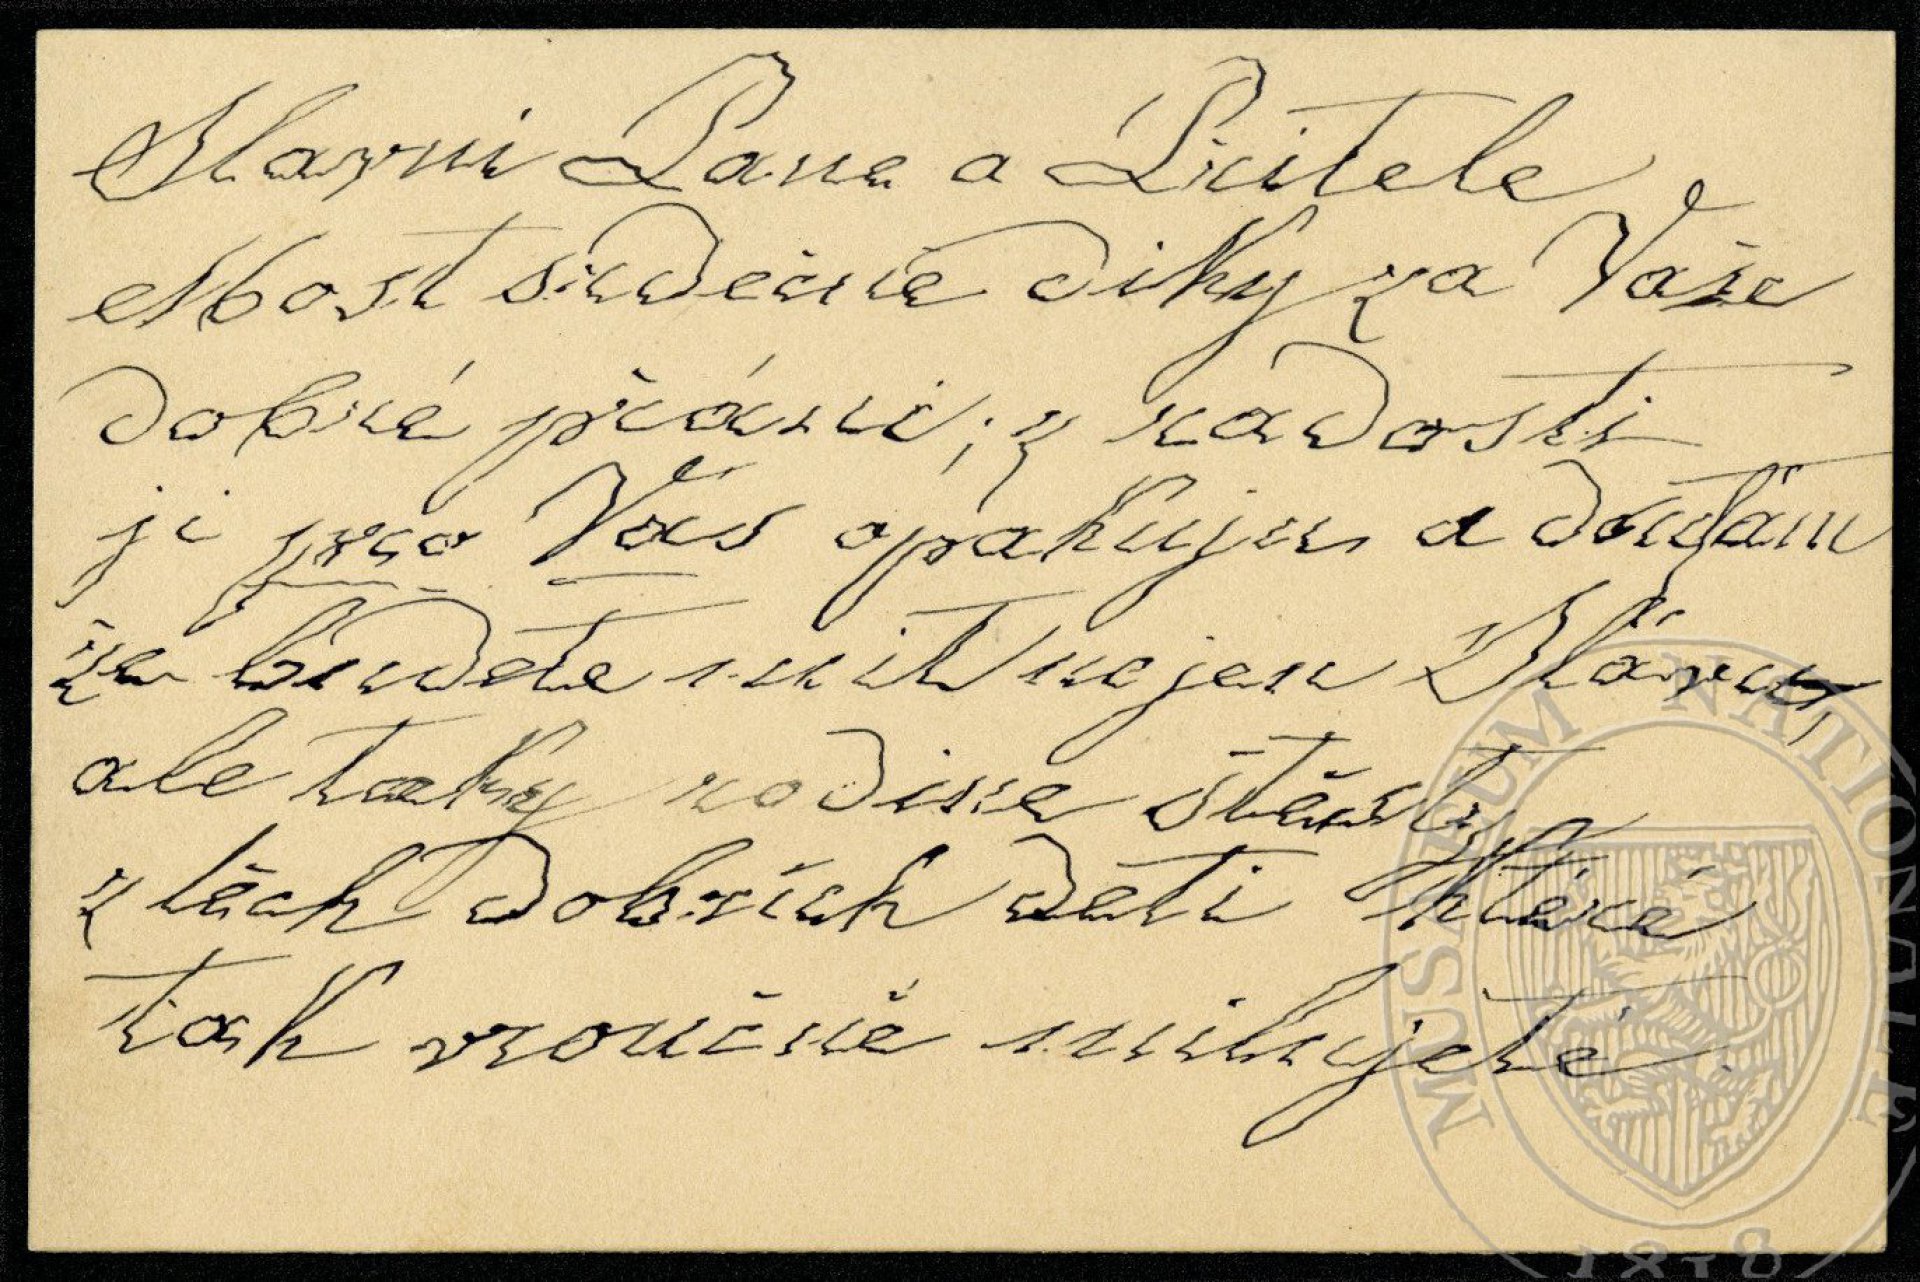 Slavni Pane a Přitele
Most srdečně diky za Vaše
dobré přáni; z radosti
ji pro Vás opakuju a doufám
že budete mit nejen Slávu,
ale taky rodine štěsty
z těch dobrich děti které
tak vroučně milujete.
MUSAEUM NATIONALE
1818